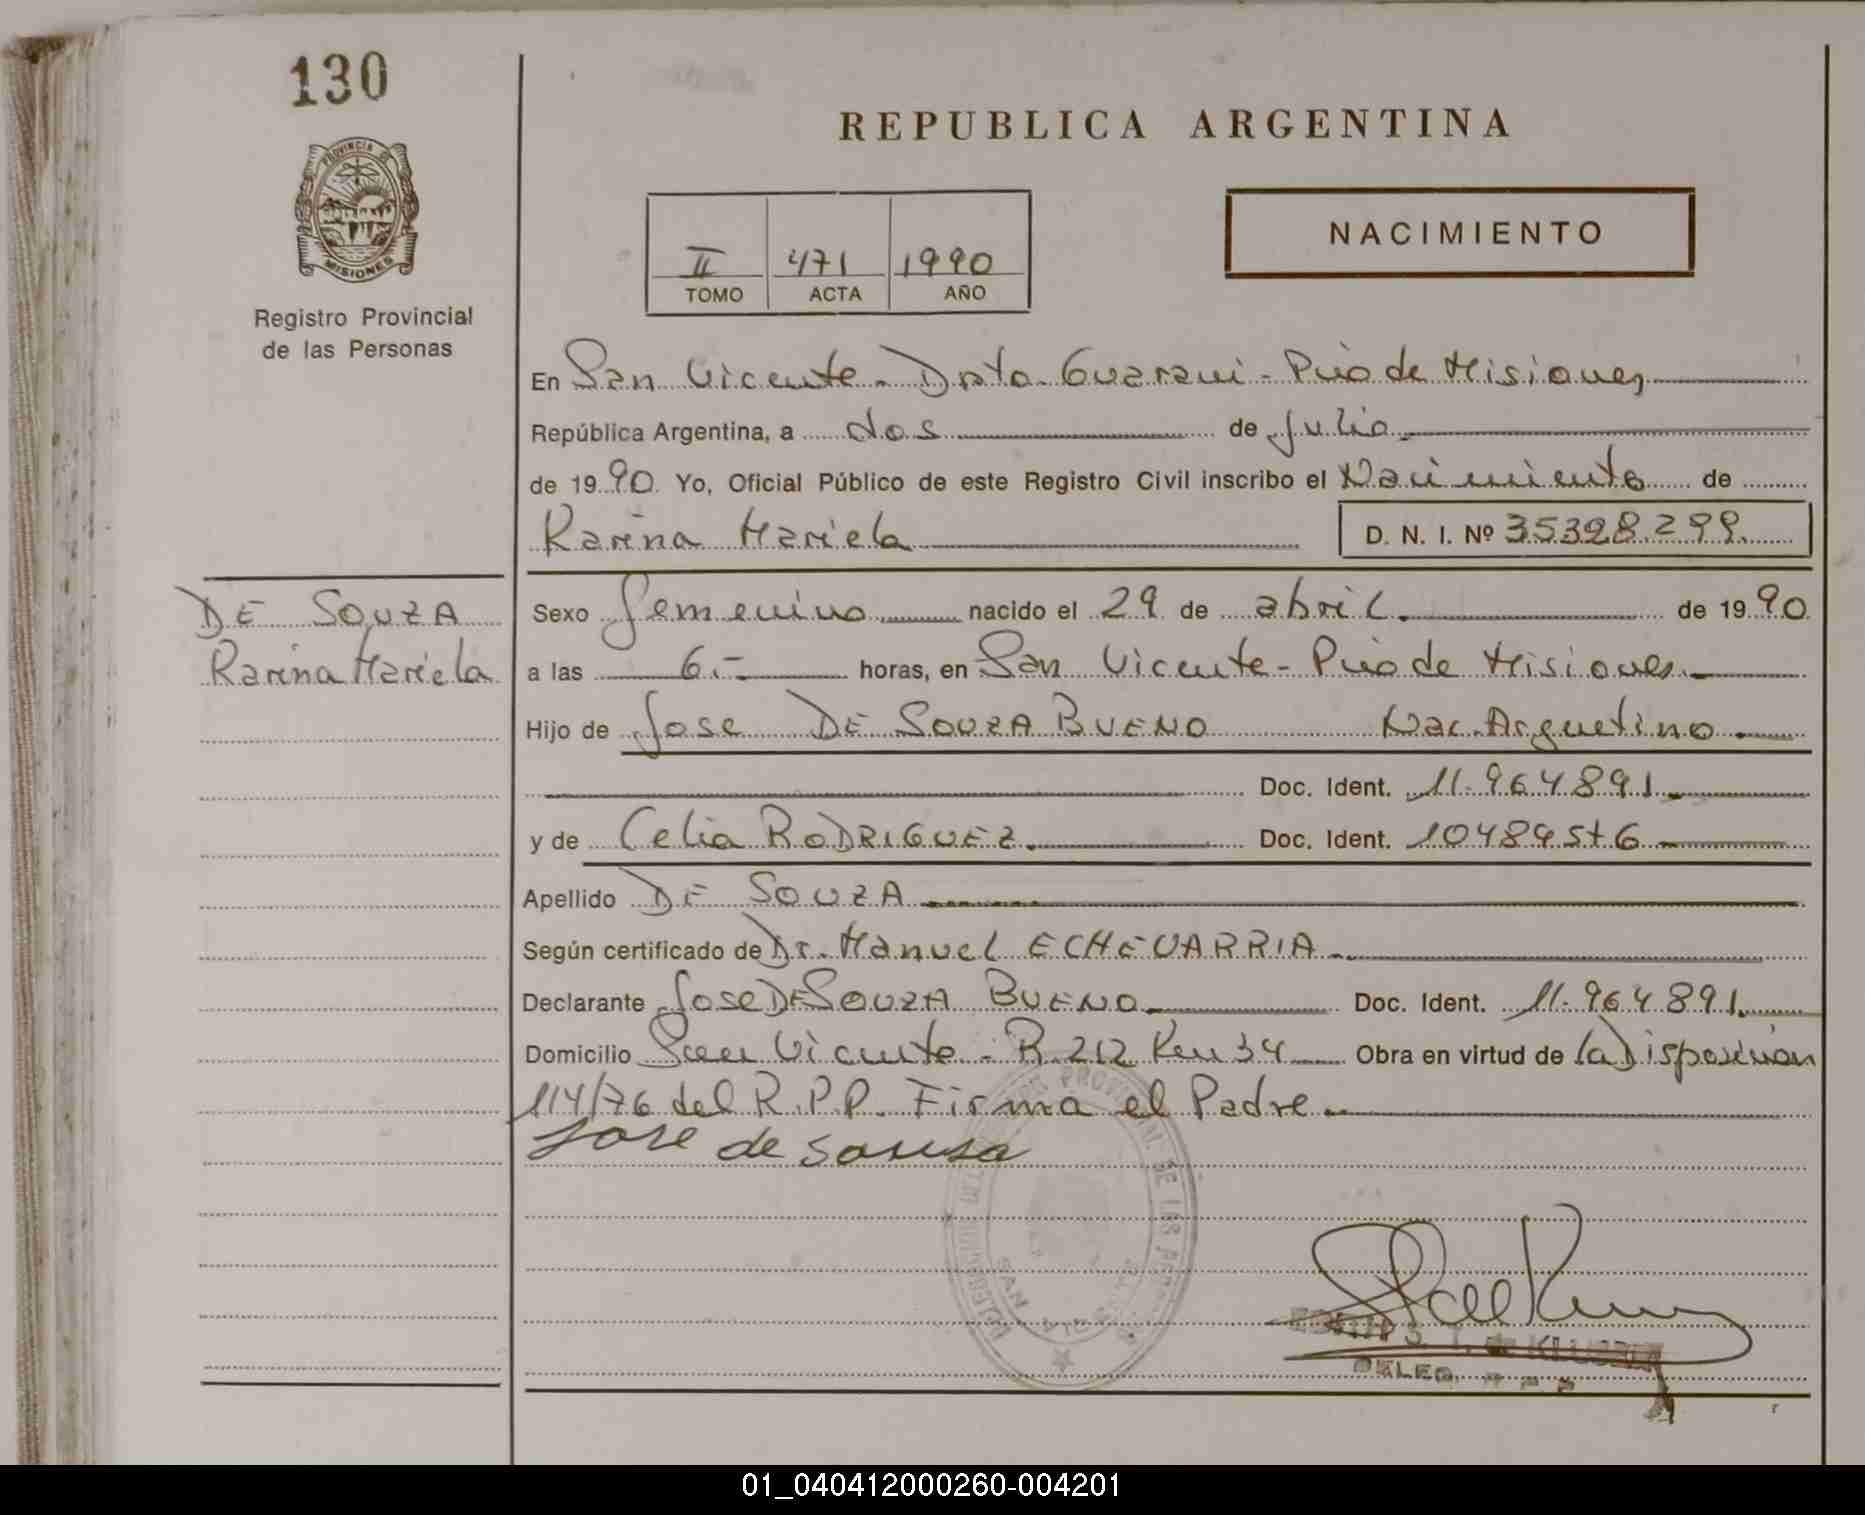 130
REPUBLICA ARGENTINA
PROVINCIA DE
MISIONES
Registro Provincial
de las Personas
II 471 1990
TOMO ACTA AÑO
NACIMIENTO
En San Vicente - Dpto. Guarani - Pcia de Misiones
República Argentina, a dos de Julio
de 1990 Yo, Oficial Público de este Registro Civil inscribo el Nacimiento de
Karina Mariela D. N. I. Nº 35328299
DE SOUZA
Karina Mariela
Sexo femenino nacido el 29 de abril de 1990
a las 6.- horas, en San Vicente - Pcia de Misiones
Hijo de Jose DE SOUZA BUENO Nac. Argentino
Doc. Ident. 11.964891
y de Celia RODRIGUEZ. Doc. Ident. 10489576
Apellido DE SOUZA
Según certificado de Dr. Manuel ECHEVARRIA
Declarante Jose DE SOUZA BUENO Doc. Ident. 11.964891
Domicilio San Vicente - R 212 Km 34 Obra en virtud de la Disposición
114/76 del R.P.P. Firma el Padre
Jose de Sousa
SAN VICENTE
DELEG. R P P
01_040412000260-004201